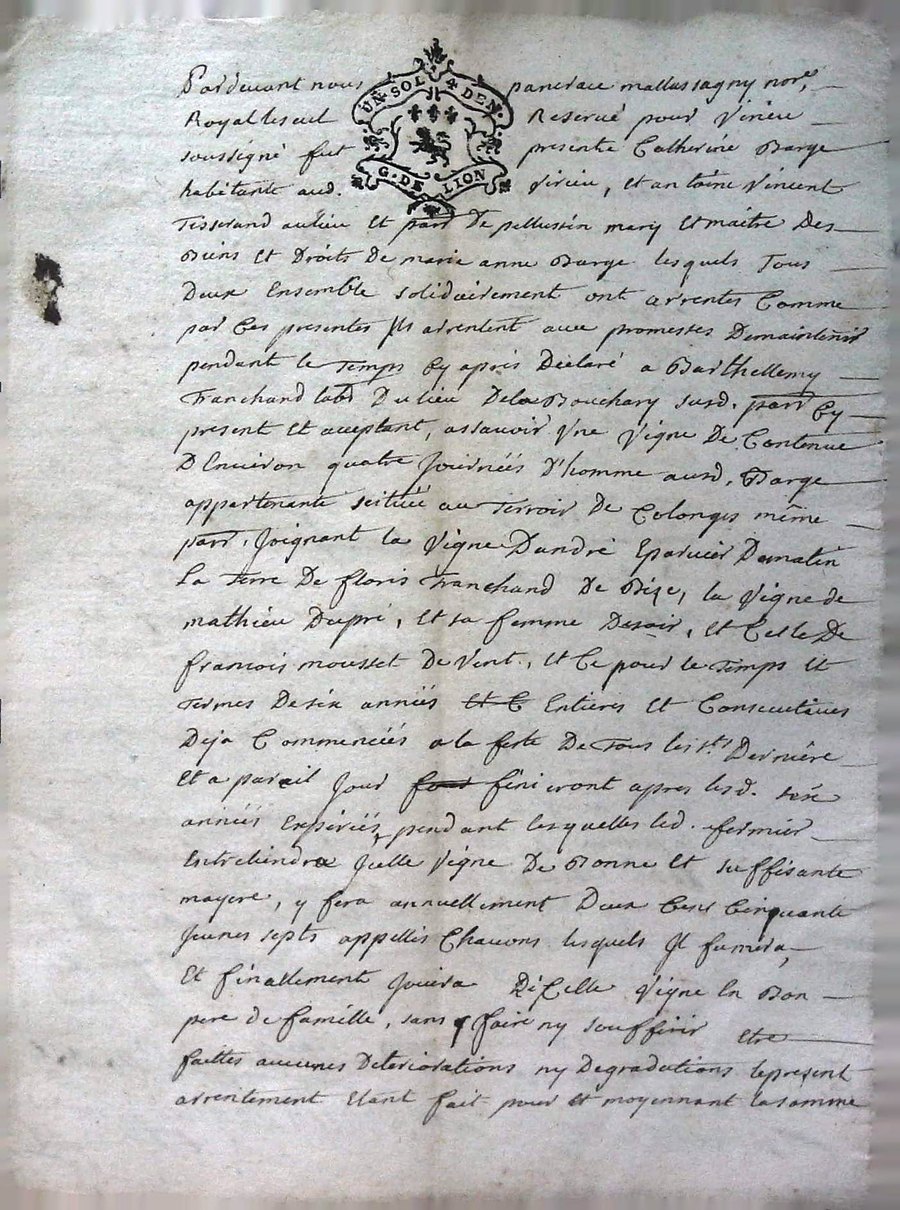 Pardevant nous pancrace mallassagny nore,
UN·SOL 4 DEN·
Royal leseul Reservé pour Virieu
soussigné fut presente Catherine Barge
G·DE LION
habitante aud. Virieu, et antoine Vincent
Tisserand audieu et parr De pellussin mary et maitre Des
Biens et Droits De marie anne Barge lesquels Tous
Deux Ensemble solidairement ont arrentes Comme
par Ces presentes Ils arrentent avec promesses Demaintenir
pendant le Temps Cy apres Declaré a Barthellemy
Tranchand labr Du lieu Dela Bouchary susd. parr Cy
present et aceptant, assavoir Vne Vigne De Contenue
D'Environ quatre Journeés D'homme ausd. Barge
appartenante scituée au Terroir De Colonges même
parr. Joignant la Vigne Dandré Eparvier Dematin
La Terre De floris Tranchand De Bize, la Vigne de
mathieu Dupré, Et sa femme Desoir, et Celle De
francois mousset De Vent, et Ce pour le Temps et
Termes Desix anneés et C Entieres et Consecutives
Deja Commenceés a la feste De Tous les Sts Derniere
Et a pareil Jour finiront apres lesd. six
anneés Expireés, pendant lesquelles led. fermier
Entretiendra Jcelle Vigne De Bonne et suffisante
mayere, y fera annuellement Deux Cent Cinquante
Jeunes septs appellés Chavons lesquels Jl fumera,
Et finallement Jouira D'iCelle Vigne En Bon
pere de famille, sans y faire ny souffrir etre
faittes aucunes Deteriorations ny Degradations lepresent
arrentement Etant fait pour et moyennant lasomme